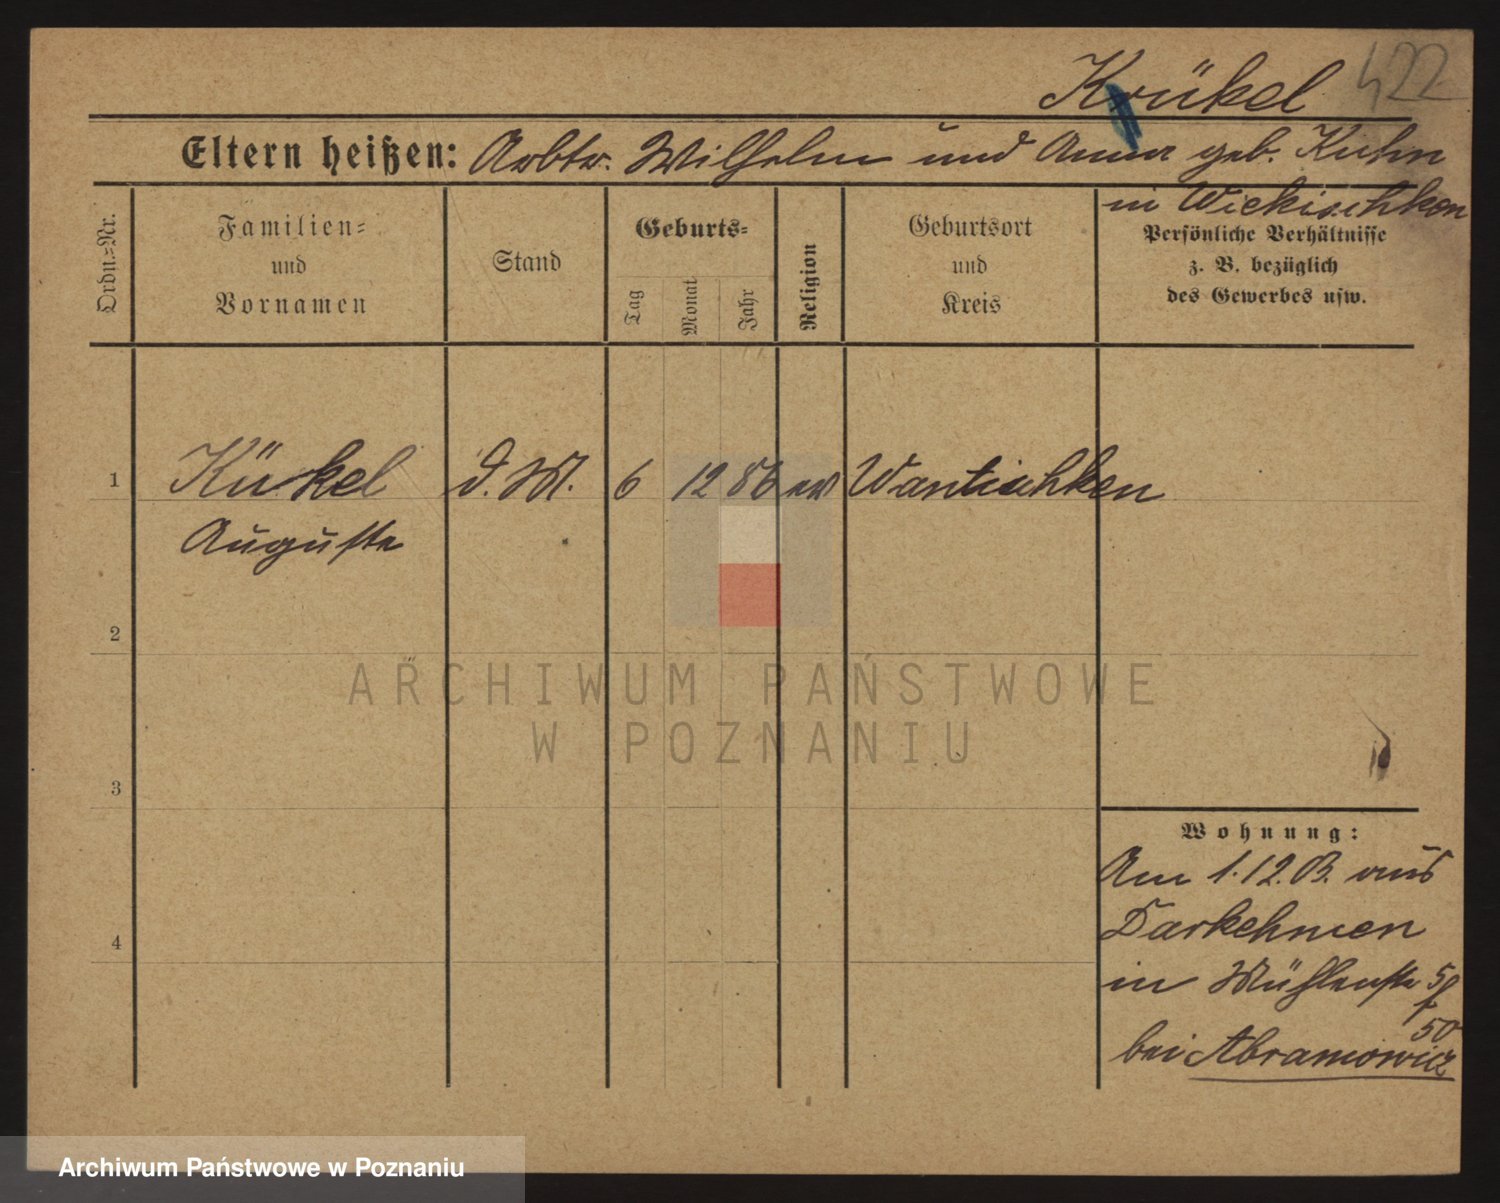 Krükel 422
Eltern heißen: Arbtr. Wilhelm und Anna geb. Kuhn
in Wickischken
Ordn.-Nr.
Familien-
und
Vornamen
Stand
Geburts-
Tag
Monat
Jahr
Religion
Geburtsort
und
Kreis
Persönliche Verhältnisse
z. B. bezüglich
des Gewerbes usw.
1 Kükel d. M. 6 12 86 ev Wantischken
Auguste
2
3
4
Wohnung:
Am 1.12.03. aus
Darkehmen
in Mühlenstr
50
bei Abramowicz
ARCHIWUM PAŃSTWOWE
W POZNANIU
Archiwum Państwowe w Poznaniu